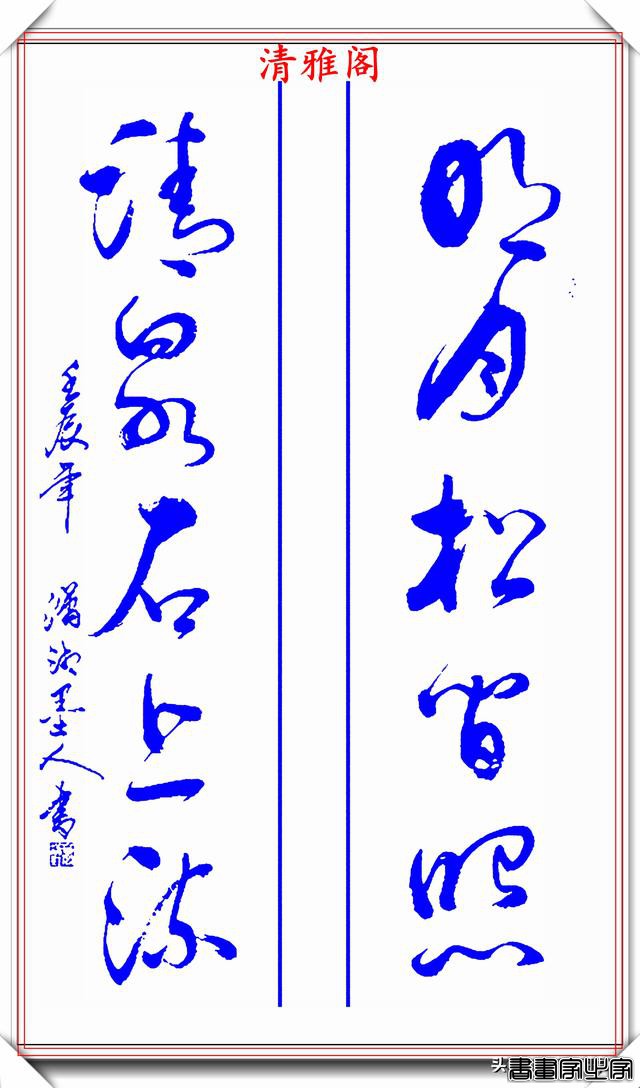 清雅阁
明月松间照
清泉石上流
壬辰年 潇湘墨人书
头条
書畫字中字